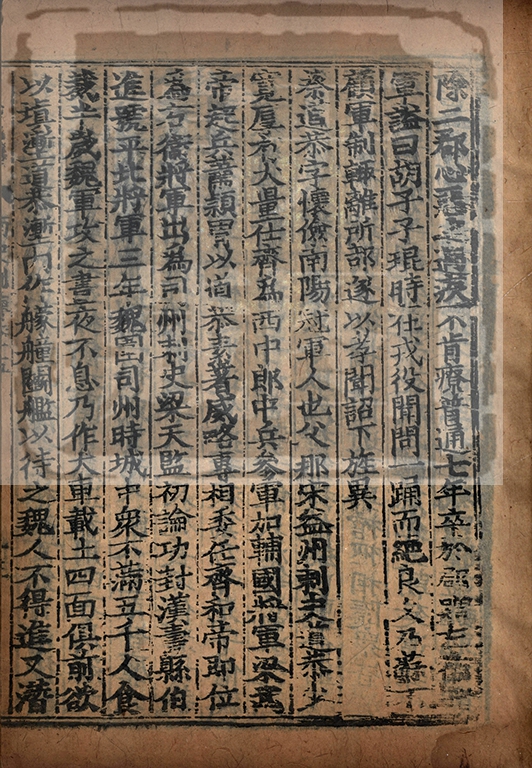 除二郡心恙疾不肯療普通七年卒於郡贈七
軍諡曰胡子子琨時仕戎役聞問一踊而絕良久乃蘇
顧軍制輒離所部遂以孝聞詔下旌異
蔡道恭字懷儉南陽冠軍人也父那宋益州刺史道恭少
寬厚有大量仕齊為西中郎中兵參軍加輔國將軍梁武
帝起兵蕭穎胄以道恭素著威略專相委任齊和帝即位
為右衛將軍出為司州刺史梁天監初論功封漢壽縣伯
進號平北將軍三年魏圍司州時城中衆不滿五千人食
裁半歲魏軍攻之晝夜不息乃作大車載土四面俱前欲
以填塹道恭塹內作艨艟鬬艦以待之魏人不得進又潛